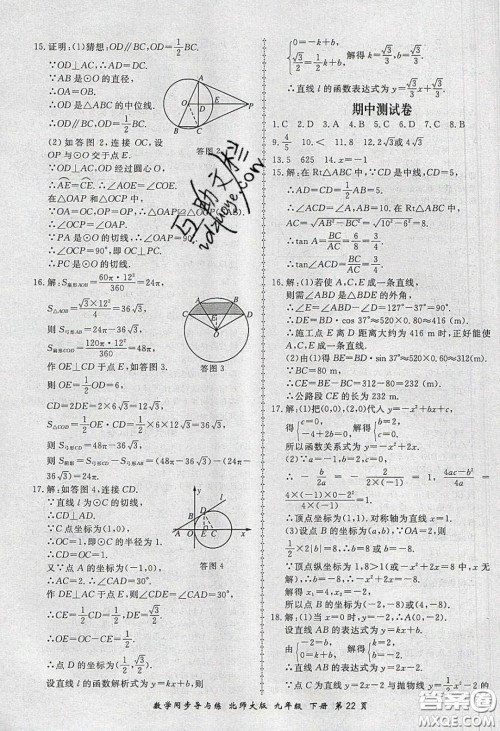 15.证明:(1)猜想:OD∥BC,OD=1/2BC.
∵OD⊥AD,∴AD=DC.
∵AB是⊙O的直径,
∴OA=OB.
∴OD是△ABC的中位线.
∴OD∥BC,OD=1/2BC.
(2)如答图2,连接OC,设
OP与⊙O交于点E.
答图2
∵OD⊥AC,OD经过圆心O,
∴∠AOE=∠COE.
在△OAP和△OCP中,
∴∠OCP=∠OAP.
∵PA是⊙O的切线,∴∠OAP=90°.
∴∠OCP=90°.即OC⊥PC.
∴PC是⊙O的切线.
16.解:S扇形AOB=60π·12²/360=24π,
S△AOB=√3×12²/4=36√3,
则S弓形AB=24π-36√3,
S扇形COD=120π·12²/360=48π,
作OE⊥CD于点E,如答图3.
则OE=1/2OD=6,
CD=2DE=2×6√3=12√3.
答图3
S△COD=1/2OE·CD=1/2×6×12√3=36√3,
则S弓形CD=48π-36√3.
则S阴影=S弓形CD-S弓形AB=(48π-36√3)-(24π-
36√3)=24π.
17.解:如答图4,连接CD.
∵直线l为⊙C的切线,
∴CD⊥AD.
∵C点坐标为(1,0),
∴OC=1,即⊙C的半径为1.
∴CD=OC=1.
又∵点A的坐标为(-1,0),
∴AC=2,∴∠CAD=30°.
答图4
作DE⊥AC于点E,则∠CDE=∠CAD=30°.
∴CE=1/2CD=1/2,DE=√3/2,
∴OE=OC-CE=1/2,
∴点D的坐标为(1/2,√3/2).
设直线l的函数解析式为y=kx+b,则
{0=-k+b, √3/2=1/2k+b, 解得k=√3/3,b=√3/3,
∴直线l的函数表达式为y=√3/3x+√3/3.
期中测试卷
1.C 2.D 3.A 4.B 5.C 6.D 7.C 8.B
9.4/5 10.< 11.8 12.2√3或4√3
13.5 625 14.x=-1
15.解:在Rt△ABC中,∵∠C=90°,
∴∠ACD=∠A.在Rt△ABC中,
AC=√AB²-BC²=√10²-6²=8,
∴tan A=BC/AC=6/8=3/4.
∴tan∠ACD=BC/AC=3/4.
16.解:(1)若使A,C,E成一条直线,
则需∠ABD是△BDE的外角,
∴∠E=∠ABD-∠D=127°-37°=90°.
∴DE=BD·cos 37°≈520×0.80=416(m).
∴施工点E离D距离大约为416 m时,正好能使A,
C,E成一条直线.
(2)由(1)得BE=BD·sin 37°≈520×0.60=312(m).
∵BC=80 m,
∴CE=BE-BC=312-80=232(m).
∴公路段CE的长约为232 m.
17.解:(1)把(0,0),(2,0)代入y=-x²+bx+c,
得{c=0, -4+2b+c=0, 解得{b=2, c=0.
所以函数关系式为y=-x²+2x.
∴-b/2a=-2/(2×(-1))=1,(4ac-b²)/4a=
(4×(-1)×0-2²)/(4×(-1))=1.
∴顶点坐标为(1,1),对称轴为直线x=1.
1/2×2|8|=8,∴|n|=8.
∵顶点纵坐标为1,8>1(或-x²+2x=8中,x无
解),∴n=-8.
∴-x²+2x=-8,解得x₁=-2,x₂=4.
所以点B的坐标为(-2,-8)或(4,-8).
18.解:(1)当x=0时,y=-2,∴A(0,-2).
设直线AB的表达式为y=kx+b,
∴直线AB的表达式为y=2x-2.
∵点C为直线y=2x-2与抛物线y=-x²+
数学同步导与练 北师大版 九年级 下册 第22页
答案圈